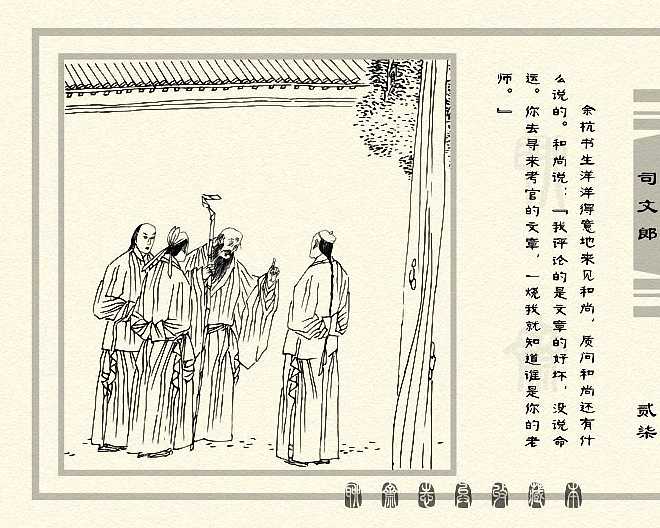 余杭书生洋洋得意地来见和尚，质问和尚还有什
么说的。和尚说：『我评论的是文章的好坏，没说命
运。你去寻来考官的文章，一烧我就知道谁是你的老
师。』
司文郎
贰柒
聊斋志异收藏本